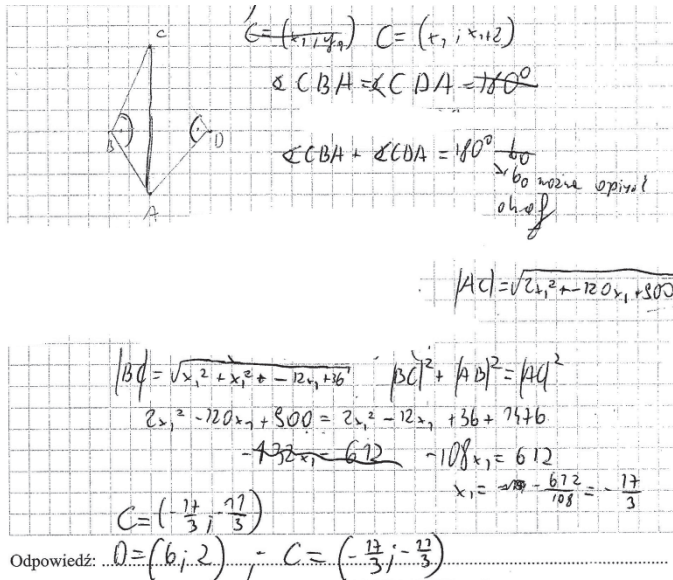 C = (x₁ ; x₁+2)
C
B
D
A
∢CBA = ∢CDA =
∢CBA + ∢CDA = 180° bo
bo można opisać
okrąg
|AC| = √2x₁² + -120x₁ + 900
|BC| = √x₁² + x₁² + -12x₁ + 36 |BC|² + |AB|² = |AC|²
2x₁² - 120x₁ + 900 = 2x₁² - 12x₁ + 36 + 1476
-432x₁ = 612 -108x₁ = 612
x₁ = - 612/108 = - 17/3
C = (-17/3 ; -11/3)
Odpowiedź: D = (6 ; 2) ; C = (-17/3 ; -11/3)